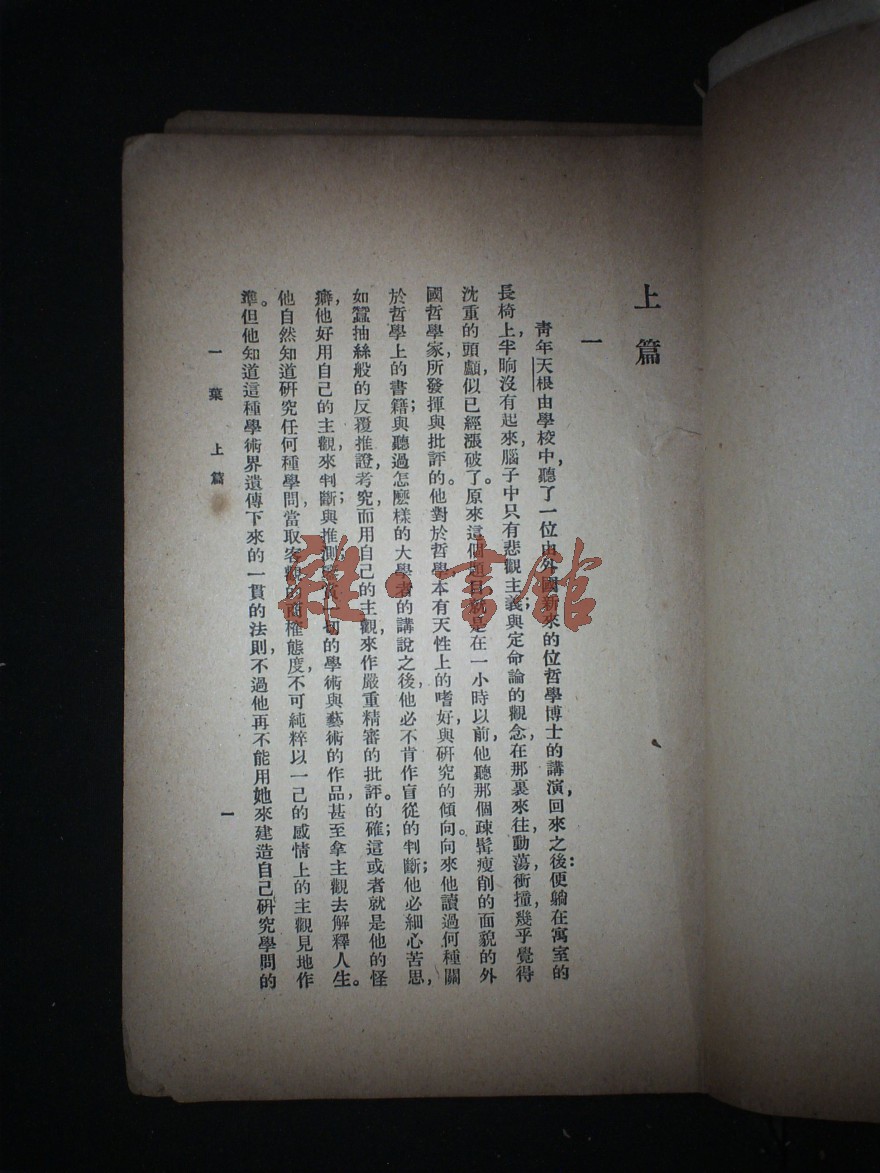 上篇
一
青年天根由學校中,聽了一位由外國新來的位哲學博士的講演,回來之後:便躺在寓室的
長椅上,半晌沒有起來;腦子中只有悲觀主義與定命論的觀念,在那裏來往,動蕩,衝撞,幾乎覺得
沈重的頭顱,似已經漲破了。原來這個題目就是在一小時以前,他聽那個疎髯瘦削的面貌的外
國哲學家,所發揮與批評的。他對於哲學,本有天性上的嗜好,與研究的傾向。向來他讀過何種關
於哲學上的書籍;與聽過怎麼樣的大學者的講說之後,他必不肯作盲從的判斷;他必細心苦思,
如蠶抽絲般的反覆推證,考究,而用自己的主觀來作嚴重精審的批評。的確;這或者就是他的怪
癖,他好用自己的主觀,來判斷;與推測一切的學術與藝術的作品,甚至拿主觀去解釋人生。
他自然知道研究任何種學問,當取客觀的商榷態度,不可純粹以一己的感情上的主觀見地作
準。但他知道這種學術界遺傳下來的一貫的法則,不過他再不能用她來建造自己研究學問的
一葉 上篇
一
雜·書館